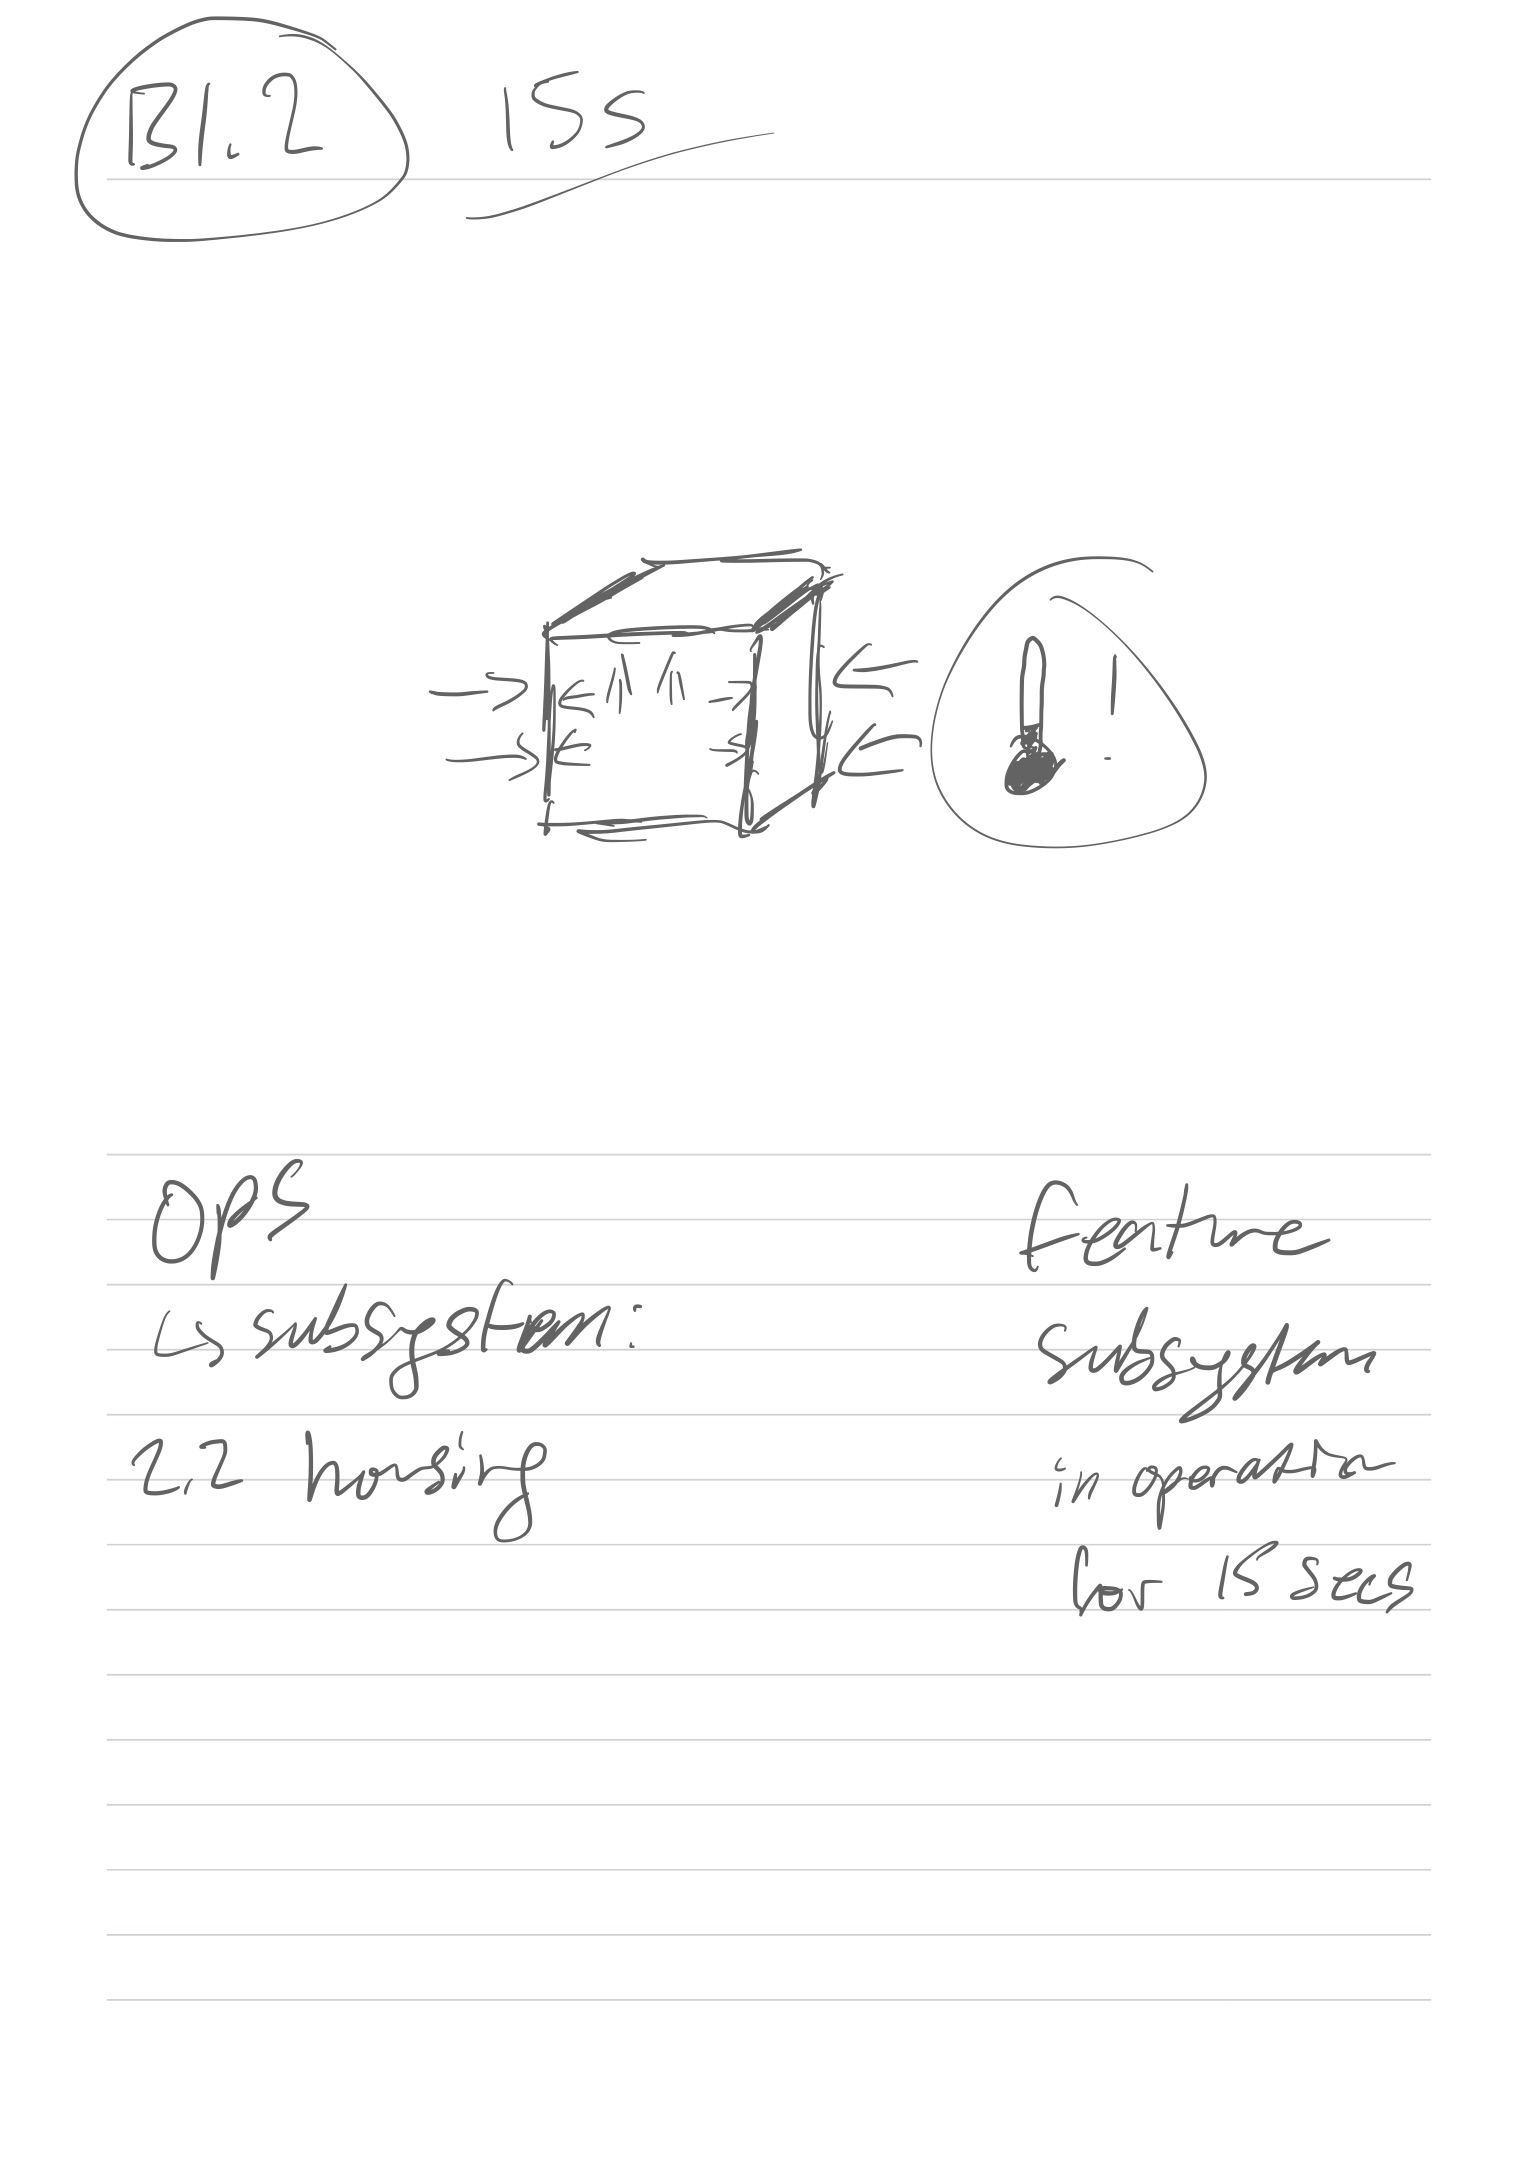 B1.2 15s
!
OPS
↳ subsystem:
2.2 housing
feature
subsystem
in operation
for 15 secs